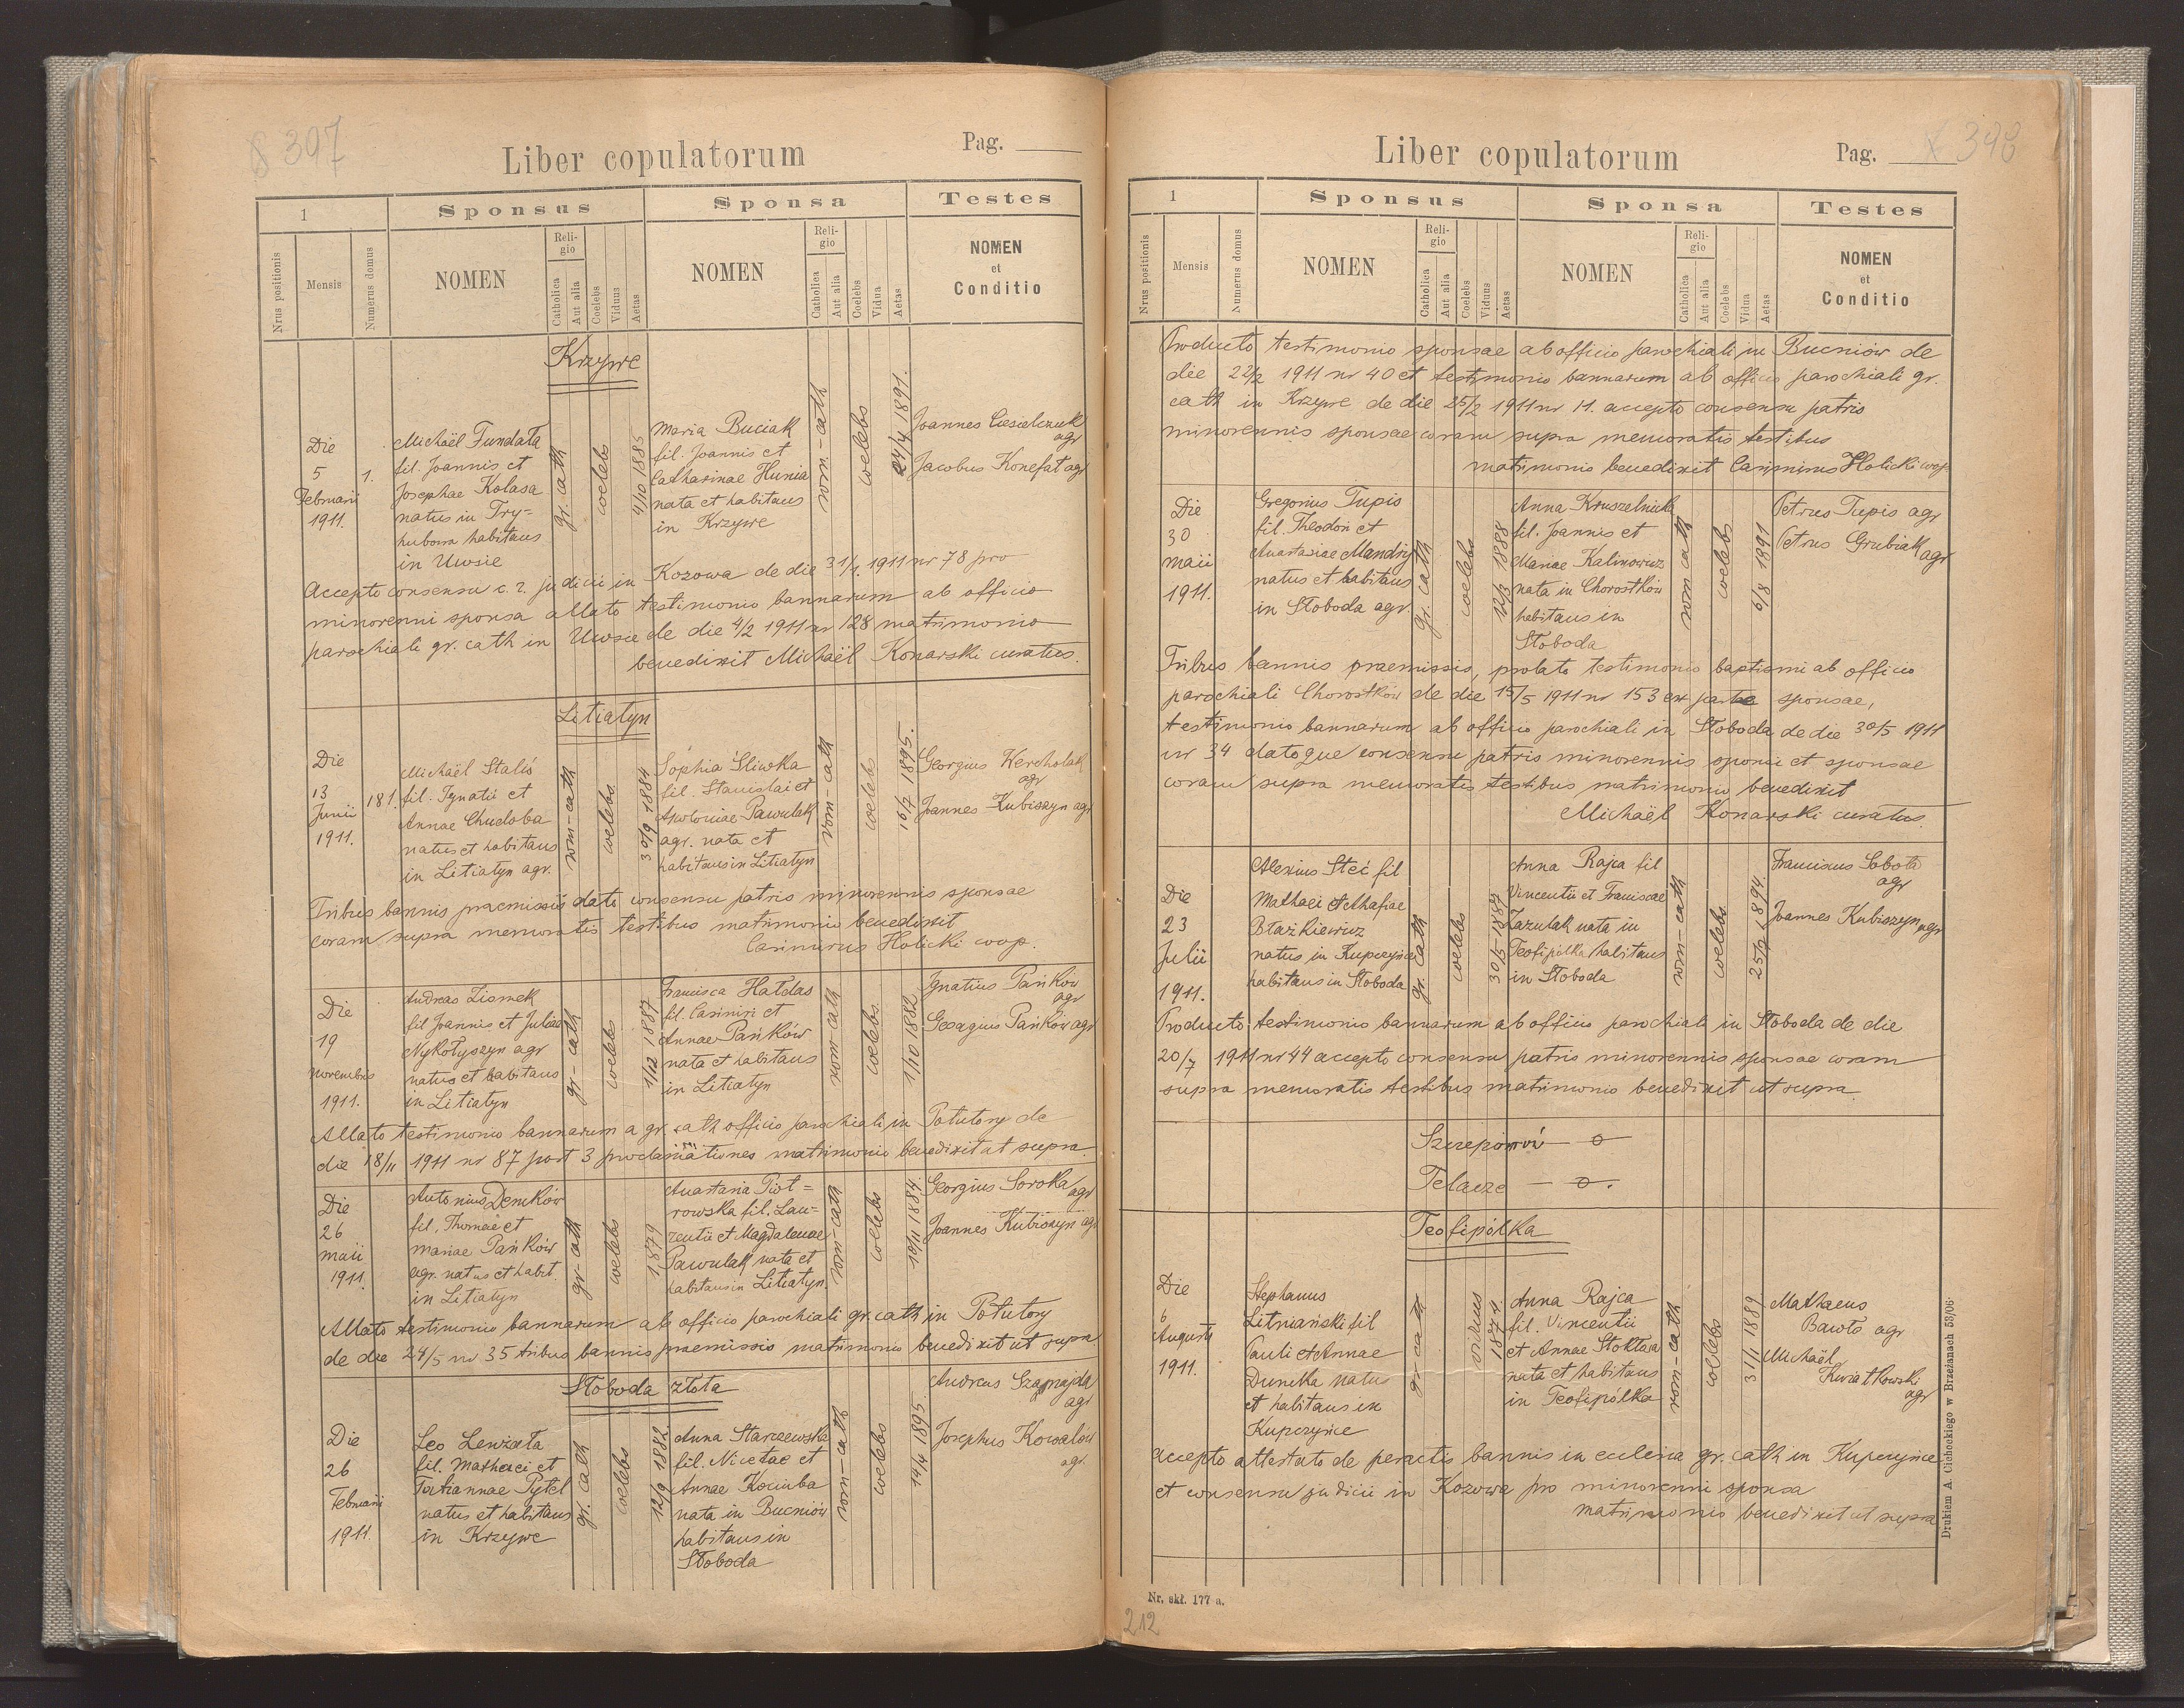 8 397
Liber copulatorum
Pag.
1
Sponsus
Sponsa
Testes
Nrus positionis
Mensis
Numerus domus
NOMEN
Religio
Catholica
Aut alia
Coelebs
Viduus
Aetas
NOMEN
Religio
Catholica
Aut alia
Coelebs
Vidua
Aetas
NOMEN
et
Conditio
Krzywe
Die
5
Februarii
1911.
1.
Michaël Fundata
fil. Joannis et
Josephae Kolasa
natus in Try=
hubowa habitans
in Uwsie
gr. cath
coelebs
4/10 1885
Maria Buciak
fil. Joannis et
Catharinae Hunia
nata et habitans
in Krzywe
rom.-cath
coelebs
24/4 1891.
Joannes Ciesielczuk
agr
Jacobus Konefat agr
Accepto consensu c. r. judicii in Kozowa de die 31/1. 1911 nr 78 pro
minorenni sponsa allato testimonio bannarum ab officio
parochiali gr. cath in Uwsie de die 4/2 1911 nr 128 matrimonio
benedixit Michaël Konarski curatus.
Litiatyn
Die
13
Junii
1911.
181.
Michaël Staliś
fil. Ignatii et
Annae Chudoba
natus et habitans
in Litiatyn agr.
rom-cath
coelebs
30/9 1884
Sophia Śliwka
fil. Stanislai et
Apoloniae Pawulak
agr. nata et
habitans in Litiatyn
rom-cath
coelebs
16/7 1895.
Georgius Kercholak
agr
Joannes Kubiszyn agr
Tribus bannis praemissis dato consensu patris minorennis sponsae
coram supra memoratis testibus matrimonio benedixit
Casimirus Holicki coop.
Die
19
Novembris
1911.
Andreas Ziomek
fil Joannis et Juliae
Nykołyszyn agr
natus et habitans
in Litiatyn
gr-cath
coelebs
1/12 1887
Francisca Hałdas
fil. Casimiri et
Annae Pańków
nata et habitans
in Litiatyn
rom cath
coelebs
1/10 1882
Ignatius Pańków
agr
Georgius Pańków agr
Allato testimonio bannarum a gr. cath officio parochiali in Potutory de
die 18/11 1911 nr 87 post 3 proclamationes matrimonio benedixit ut supra.
Die
26
maii
1911.
Antonius Demków
fil. Thomae et
mariae Pańków
agr. natus et habit.
in Litiatyn
gr-cath
coelebs
1879
Anastasia Piot=
rowska fil. Lau=
rentii et Magdalenae
Pawulak nata et
habitans in Litiatyn
rom-cath
coelebs
10/11 1884.
Georgius Soroka agr
Joannes Kubiszyn agr
Allato testimonio bannarum ab officio parochiali gr. cath in Potutory
de die 24/5 nr 35 tribus bannis praemissis matrimonio benedixit ut supra
Słoboda złota
Die
26
Februarii
1911.
Leo Lewżata
fil. Mathaei et
Tatiannae Pytel
natus et habitans
in Krzywe
gr. cath
coelebs
12/9 1882.
Anna Starzewska
fil. Nicetae et
Annae Kociuba
nata in Bucniów
habitans in
Słoboda
rom-cath
coelebs
14/4 1895
Andreas
agr
Josephus Kowalów
agr.
398
Liber copulatorum
Pag.
1
Sponsus
Sponsa
Testes
Nrus positionis
Mensis
Numerus domus
NOMEN
Religio
Catholica
Aut alia
Coelebs
Viduus
Aetas
NOMEN
Religio
Catholica
Aut alia
Coelebs
Vidua
Aetas
NOMEN
et
Conditio
Producto testimonio sponsae ab officio parochiali in Bucniów de
die 22/2 1911 nr 40 et testimonio bannarum ab officio parochiali gr.
cath in Krzywe de die 25/2 1911 nr 11. accepto consensu patris
minorennis sponsae coram supra memoratis testibus
matrimonio benedixit Casimirus Holicki coop
Die
30
maii
1911.
Gregorius Tupis
fil. Theodori et
Anastasiae Mandrij
natus et habitans
in Słoboda agr.
gr. cath
coelebs
12/3 1888
Anna Kruszelnicka
fil. Joannis et
Mariae Kalinowicz
nata in Chorostków
habitans in
Słoboda
rom cath
coelebs
6/8 1891
Petrus Tupis agr
Petrus Grubiak agr
Tribus bannis praemissis, prolato testimonio baptismi ab officio
parochiali Chorostków de die 15/5 1911 nr 153 ex parte sponsae,
testimonio bannarum ab officio parochiali in Słoboda de die 30/5 1911
nr 34 datoque consensu patris minorennis sponsi et sponsae
coram supra memoratis testibus matrimonio benedixit
Michaël Konarski curatus.
Die
23
Julii
1911.
Alexius Steć fil
Mathaei et Mafiae
Błażkiewicz
natus in Kupczyńce
habitans in Słoboda
gr. cath
coelebs
30/5 1887
Anna Rajca fil
Vincentii et Franciscae
Zazulak nata in
Teofipólka habitans
in Słoboda
rom-cath
coelebs
25/9 1894.
Franciscus Sobota
agr
Joannes Kubiszyn agr
Producto testimonio bannarum ab officio parochiali in Słoboda de die
20/7 1911 nr 44 accepto consensu patris minorennis sponsae coram
supra memoratis testibus matrimonio benedixit ut supra.
Szczepanów — o —
Telacze — o —.
Teofipólka
Die
6
Augusti
1911.
Stephanus
Litniański fil
Pauli et Annae
Dumka natus
et habitans in
Kupczyńce
gr cath
viduus
1874.
Anna Rajca
fil. Vincentii
et Annae Stokłosa
nata et habitans
in Teofipólka
rom-cath
coelebs
31/1 1889
Mathaeus
Bawoł agr
Michaël
Kwiatkowski
agr
Accepto attestato de peractis bannis in ecclesia gr. cath in Kupczyńce
et consensu judicii in Kozowa pro minorenni sponsa
matrimonio benedixit ut supra
Drukiem A. Cichockiego w Brzeżanach 53/06.
Nr. skł. 177 a.
212